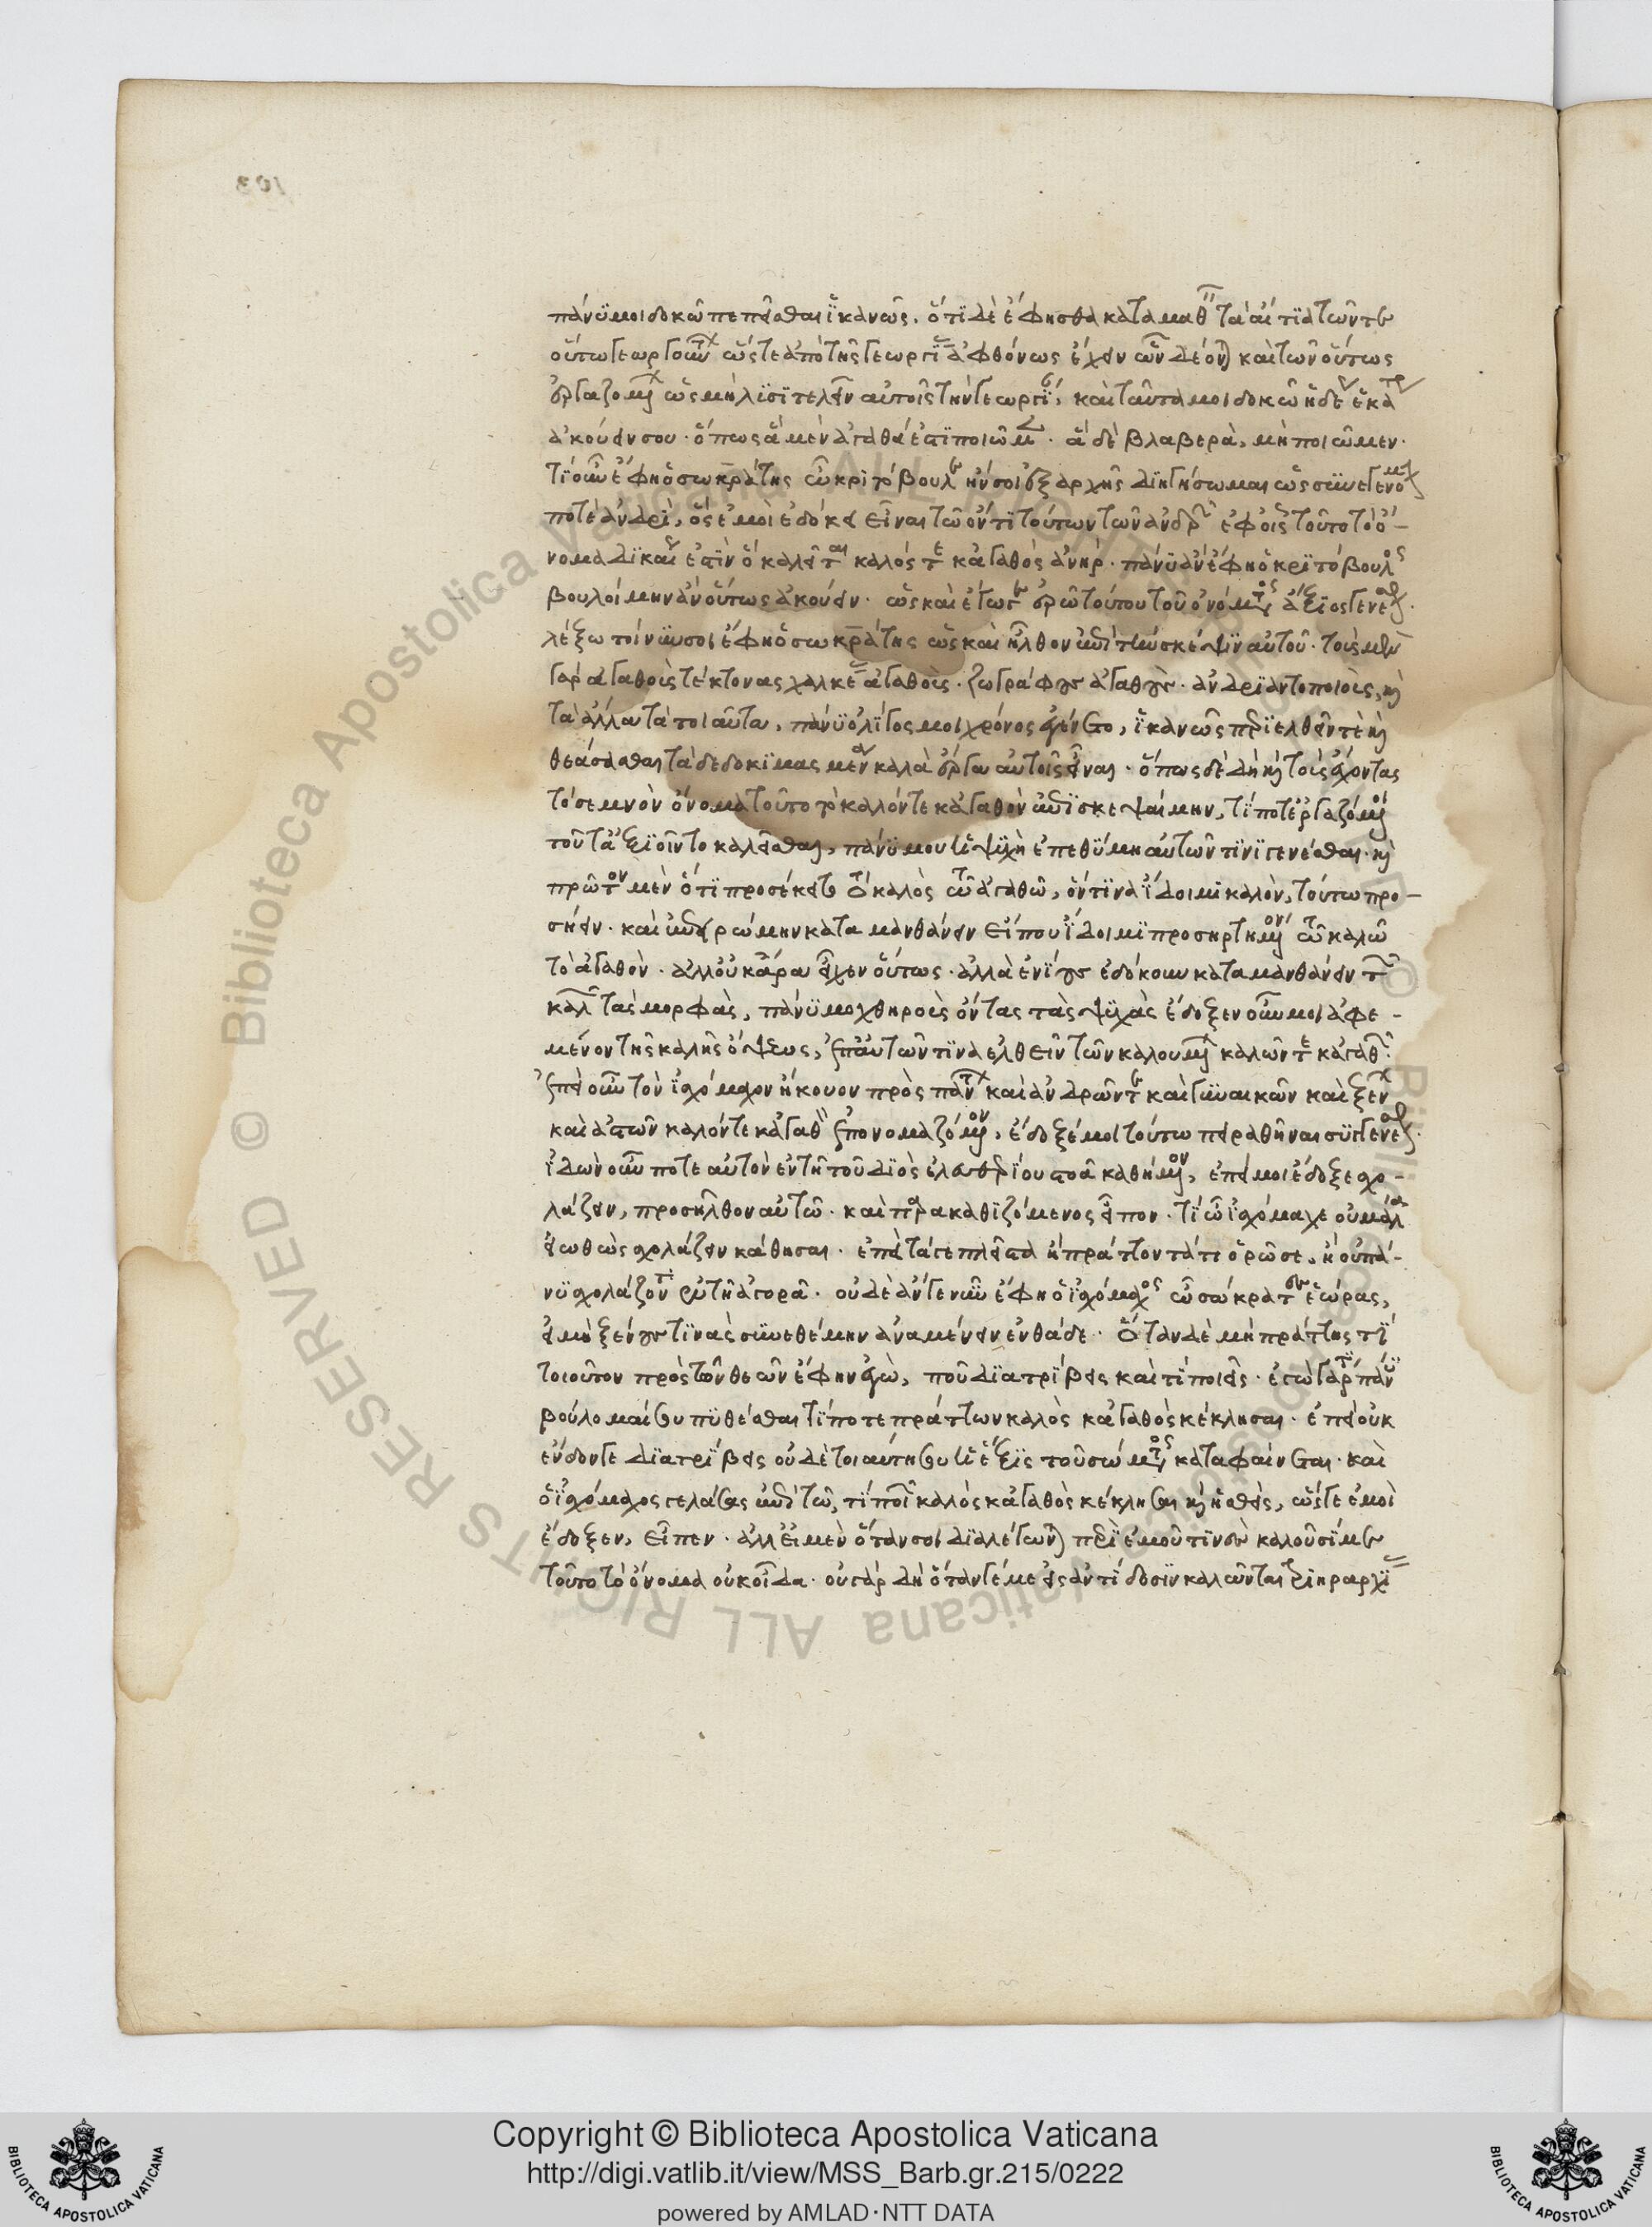 πάνυ μοι δοκῶ πεπεῖσθαι ἱκανῶς. ὅτι δὲ ἔφησθα καταμαθεῖν τὰ αἴτια τῶν τε
οὕτω γεωργούντων ὥστε ἀπὸ τῆς γεωργίας ἀφθόνως ἔχειν ὧν δέονται καὶ τῶν οὕτως
ἐργαζομένων ὡς μὴ λισιτελεῖν αὐτοῖς τὴν γεωργίαν, καὶ ταῦτα μοι δοκῶ ἡδέως ἑκάτερα
ἀκούειν σου. ὅπως ἃ μὲν ἀγαθά ἐστι ποιῶμεν. ἃ δὲ βλαβερὰ, μὴ ποιῶμεν.
τί οὖν ἔφη ὁ σωκράτης ὦ κριτόβουλε ἤν σοι ἐξαρχῆς διηγήσωμαι ὡς συνεγενόμην
ποτὲ ἀνδρὶ, ὃς ἐμοὶ ἐδόκει εἶναι τῷ ὄντι τούτων τῶν ἀνδρῶν ἐφ οἷς τοῦτο τὸ ὄ-
νομα δικαίως ἐστὶν ὃ καλεῖται καλός τε κἀγαθὸς ἀνήρ. πάνυ ἂν ἔφη ὁ κριτόβουλος
βουλοίμην ἂν οὕτως ἀκούειν. ὡς καὶ ἔγωγε ἐρῶ τούτου τοῦ ὀνόματος ἄξιος γενέσθαι.
λέξω τοίνυν σοι ἔφη ὁ σωκράτης ὡς καὶ ἦλθον ἐπὶ τὴν σκέψιν αὐτοῦ. τοὺς μὲν
γὰρ ἀγαθοὺς τέκτονας χαλκέας ἀγαθοὺς. ζωγράφους ἀγαθοὺς. ἀνδριαντοποιοὺς, καὶ
τὰ ἄλλα τὰ τοιαῦτα, πάνυ ὀλίγος μοι χρόνος ἐγένετο, ἱκανῶς περιελθεῖν τὲ καὶ
θεάσασθαι τὰ δεδοκιμασμένα καλὰ ἔργα αὐτοῖς εἶναι. ὅπως δὲ δὴ καὶ τοὺς ἔχοντας
τὸ σεμνὸν ὄνομα τοῦτο τὸ καλόν τε κἀγαθὸν ἐπισκεψαίμην, τί ποτὲ ἐργαζόμενοι
τοῦτ ἀξιοῖντο καλεῖσθαι, πάνυ μου ἡ ψυχὴ ἐπεθύμει αὐτῶν τινὶ γενέσθαι. καὶ
πρῶτον μὲν ὅτι προσέκειτο ὁ καλὸς τῷ ἀγαθῷ, ὅντινα ἴδοιμι καλὸν, τούτω προ-
σήειν. καὶ ἐπειρώμην καταμανθάνειν εἴ που ἴδοιμι προσηρτημένον τῷ καλῷ
τὸ ἀγαθὸν. ἀλλ οὐκ ἄρα εἶχεν οὕτως. ἀλλὰ ἐνίους ἐδόκουν καταμανθάνειν τῶν
καλῶν τὰς μορφὰς, πάνυ μοχθηροὺς ὄντας τὰς ψυχὰς ἔδοξεν οὖν μοι ἀφε-
μένον τῆς καλῆς ὄψεως, ἐπ αὐτῶν τινα ἐλθεῖν τῶν καλουμένων καλῶν τε κἀγαθῶν.
ἐπεὶ οὖν τὸν ἰσχόμαχον ἤκουον πρὸς πάντων καὶ ἀνδρῶν τε καὶ γυναικῶν καὶ ξένων
καὶ ἀστῶν καλόν τε κἀγαθὸν ἐπονομαζόμενον, ἔδοξέ μοι τούτω πειραθῆναι συγγενέσθαι.
ἰδὼν οὖν ποτε αὐτὸν ἐν τῇ τοῦ διὸς ἐλευθερίου στοᾷ καθήμενον, ἐπεί μοι ἔδοξε σχο-
λάζειν, προσῆλθον αὐτῷ. καὶ παρακαθιζόμενος εἶπον. τί ὦ ἰσχόμαχε οὐ μάλα
εἰωθὼς σχολάζειν κάθησαι. ἐπεὶ τά γε πλεῖστα ἢ πράττοντά τι ὁρῶ σε, ἢ οὐ πά-
νυ σχολάζοντα ἐν τῇ ἀγορᾷ. οὐδὲ ἄν γε νῦν ἔφη ὁ ἰσχόμαχος ὦ σώκρατες ἑώρας,
εἰ μὴ ξένους τινὰς συνεθέμην ἀναμένειν ἐνθάδε. ὅταν δὲ μὴ πράττης τί
τοιοῦτον πρὸς τῶν θεῶν ἔφην ἐγὼ, ποῦ διατρίβεις καὶ τί ποιεῖς. ἐγὼ γάρ τοι πάνυ
βούλομαί σου πυθέσθαι τί ποτε πράττων καλὸς κἀγαθὸς κέκλησαι. ἐπεὶ οὐκ
ἔνδον γε διατρίβεις οὐδὲ τοιαύτη σου ἡ ἕξις τοῦ σώματος καταφαίνεται. καὶ
ὁ ἰσχόμαχος γελάσας ἐπὶ τῷ, τί ποιῶν καλὸς κἀγαθὸς κέκλησαι καὶ ἡσθεὶς, ὥς γε ἐμοὶ
ἔδοξεν, εἶπεν. ἀλλ εἰ μὲν ὅταν σοι διαλέγωνται περὶ ἐμοῦ τινὲς καλοῦσί με
τοῦτο τὸ ὄνομα οὐκ οἶδα. οὐ γὰρ δὴ ὅταν γέ με εἰς ἀντίδοσιν καλῶνται τριηραρχίας
Copyright © Biblioteca Apostolica Vaticana
http://digi.vatlib.it/view/MSS_Barb.gr.215/0222
powered by AMLAD·NTT DATA
BIBLIOTECA APOSTOLICA VATICANA
BIBLIOTECA APOSTOLICA VATICANA
© Biblioteca Apostolica Vaticana ALL RIGHTS RESERVED